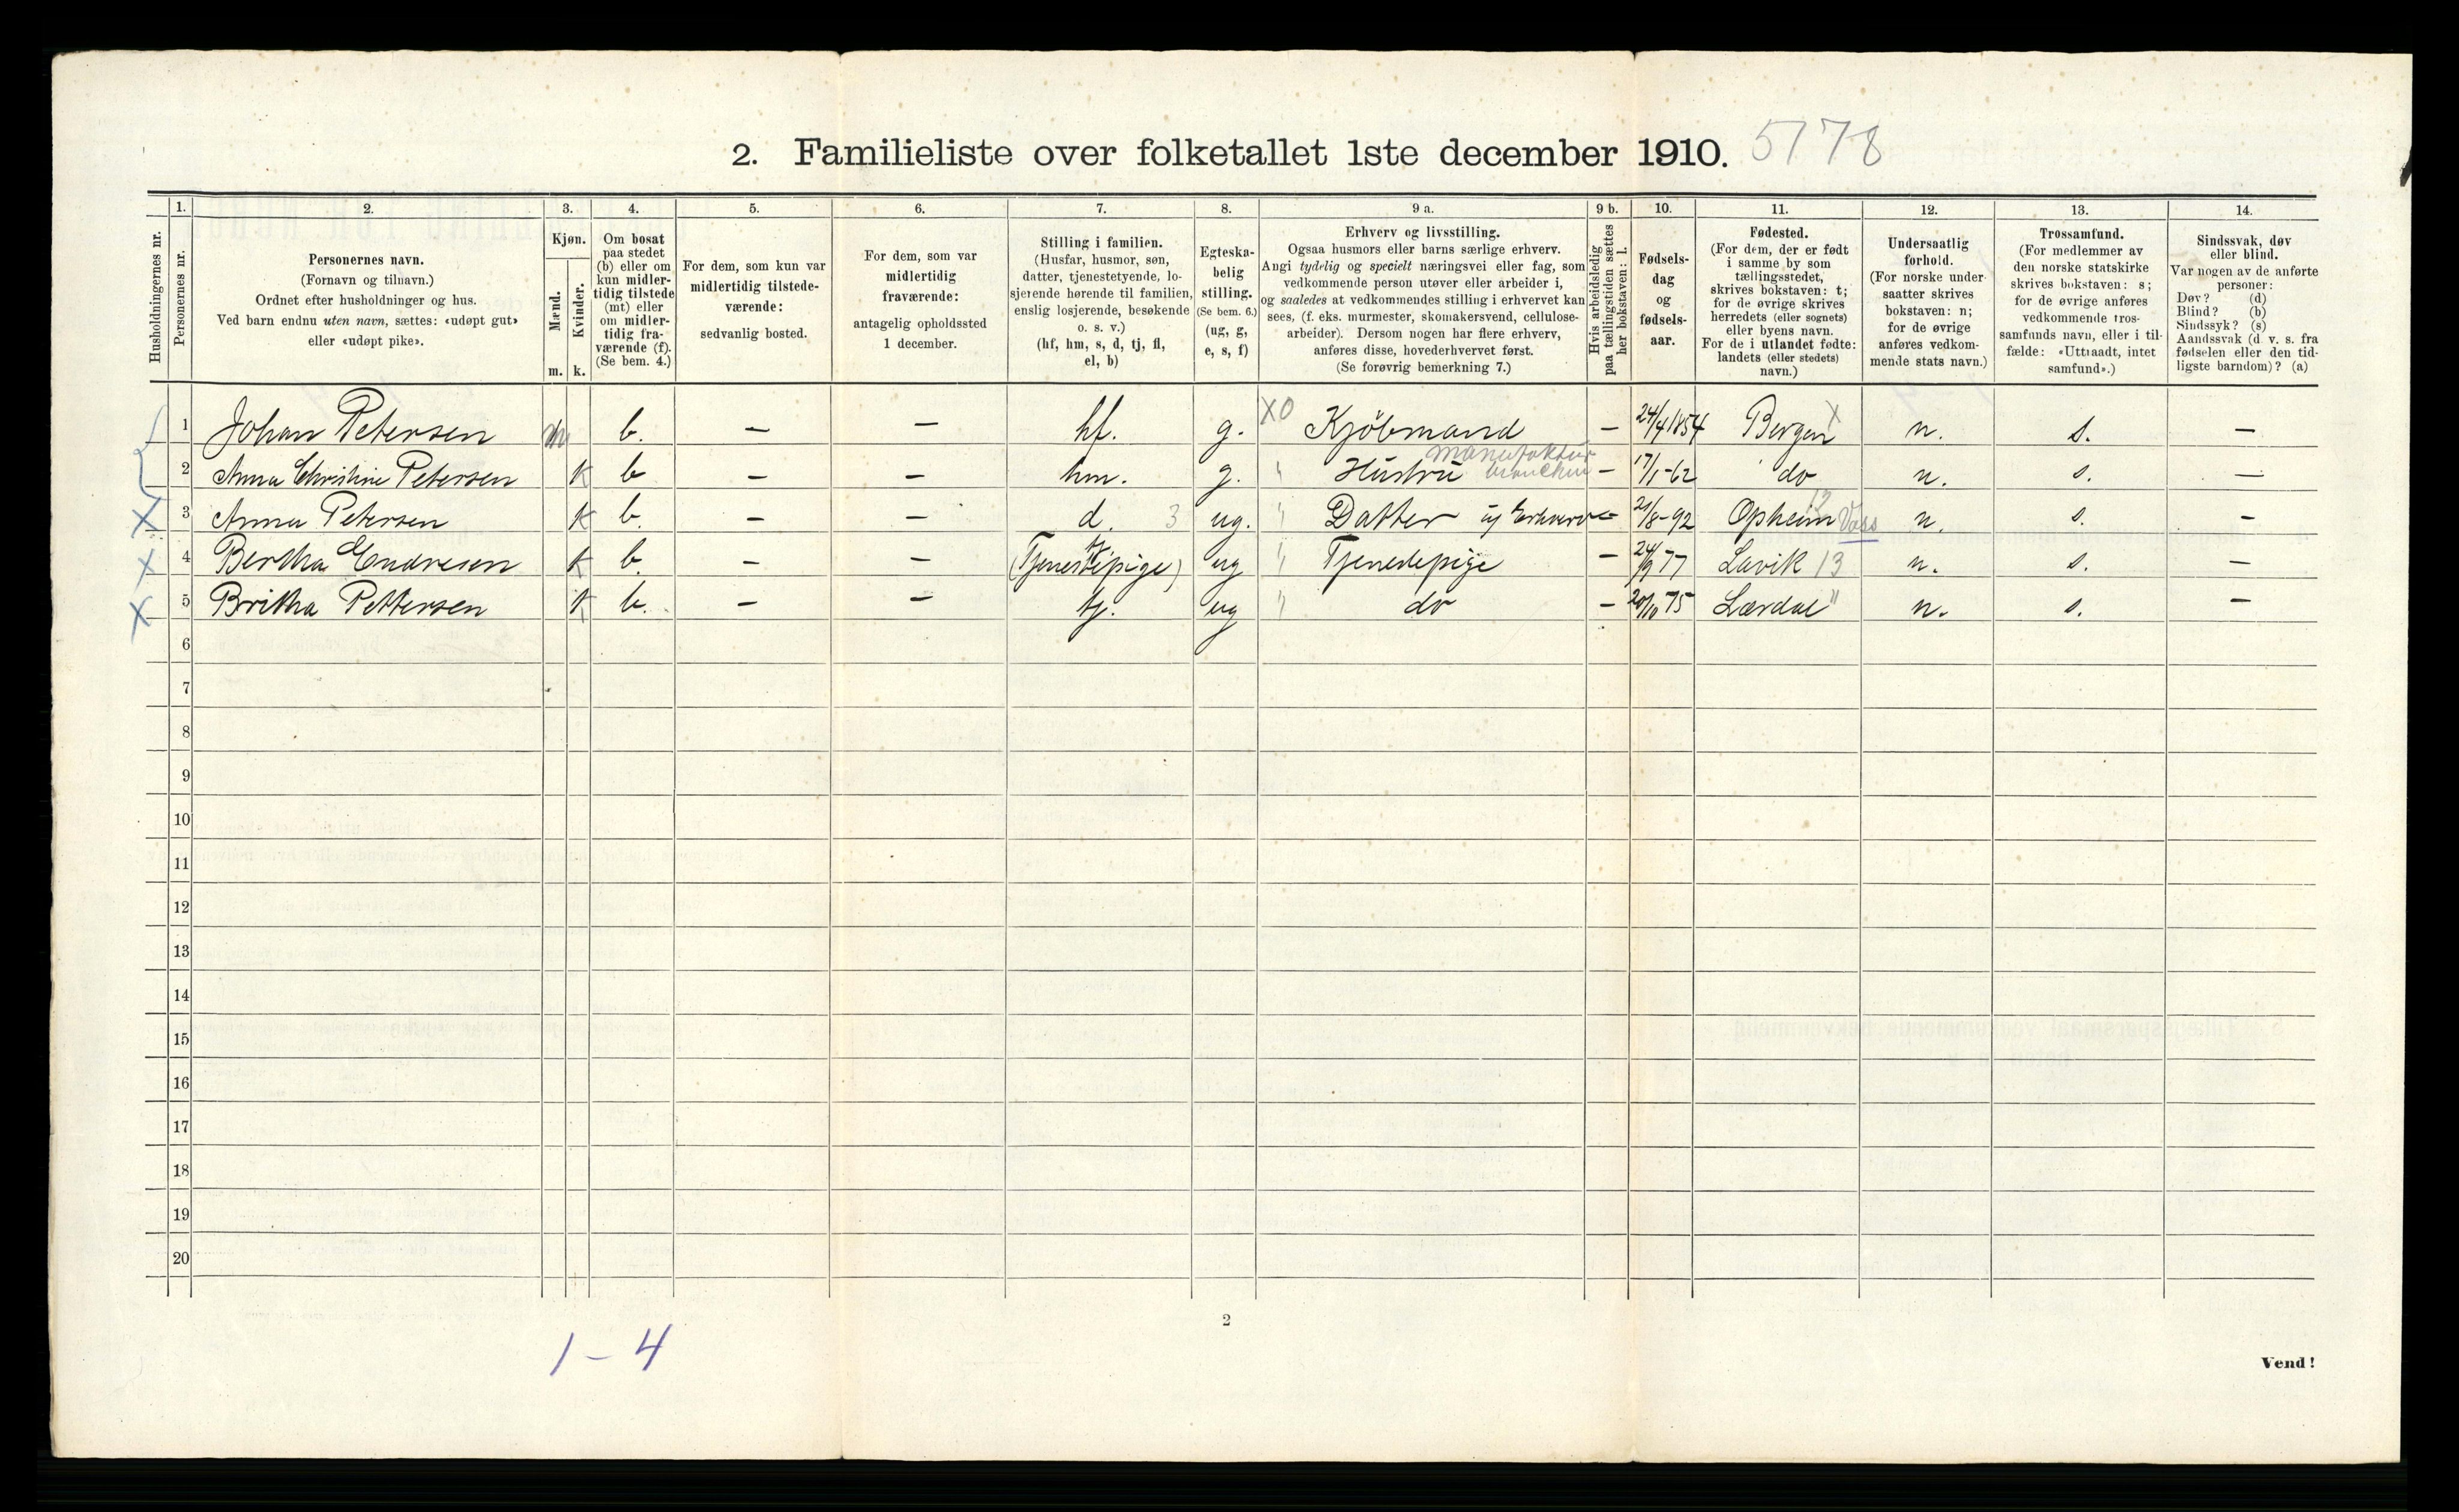 2. Familieliste over folketallet 1ste december 1910. 5178
Husholdningernes nr.
1.
Personernes nr.
2.
Personernes navn.
(Fornavn og tilnavn.)
Ordnet efter husholdninger og hus.
Ved barn endnu uten navn, sættes: «udøpt gut»
eller «udøpt pike».
3.
Kjøn.
Mænd.
Kvinder.
m. k.
4.
Om bosat
paa stedet
(b) eller om
kun midler-
tidig tilstede
(mt) eller
om midler-
tidig fra-
værende (f).
(Se bem. 4.)
5.
For dem, som kun var
midlertidig tilstede-
værende:
sedvanlig bosted.
6.
For dem, som var
midlertidig
fraværende:
antagelig opholdssted
1 december.
7.
Stilling i familien.
(Husfar, husmor, søn,
datter, tjenestetyende, lo-
sjerende hørende til familien,
enslig losjerende, besøkende
o. s. v.)
(hf, hm, s, d, tj, fl,
el, b)
8.
Egteska-
belig
stilling.
(Se bem. 6.)
(ug, g,
e, s, f)
9 a.
Erhverv og livsstilling.
Ogsaa husmors eller barns særlige erhverv.
Angi tydelig og specielt næringsvei eller fag, som
vedkommende person utøver eller arbeider i,
og saaledes at vedkommendes stilling i erhvervet kan
sees, (f. eks. murmester, skomakersvend, cellulose-
arbeider). Dersom nogen har flere erhverv,
anføres disse, hovederhvervet først.
(Se forøvrig bemerkning 7.)
9 b.
Hvis arbeidsledig
paa tællingstiden sættes
her bokstaven: l.
10.
Fødsels-
dag
og
fødsels-
aar.
11.
Fødested.
(For dem, der er født
i samme by som
tællingsstedet,
skrives bokstaven: t;
for de øvrige skrives
herredets (eller sognets)
eller byens navn.
For de i utlandet fødte:
landets (eller stedets)
navn.)
12.
Undersaatlig
forhold.
(For norske under-
saatter skrives
bokstaven: n;
for de øvrige
anføres vedkom-
mende stats navn.)
13.
Trossamfund.
(For medlemmer av
den norske statskirke
skrives bokstaven: s;
for de øvrige anføres
vedkommende tros-
samfunds navn, eller i til-
fælde: «Uttraadt, intet
samfund».)
14.
Sindssvak, døv
eller blind.
Var nogen av de anførte
personer:
Døv? (d)
Blind? (b)
Sindssyk? (s)
Aandssvak (d. v. s. fra
fødselen eller den tid-
ligste barndom)? (a)
1 Johan Petersen m b. — — hf. g. XO Kjöbmand — 24/4 1854 Bergen X n. s. —
manufaktur
branchen
2 Anna Christine Petersen K b — — hm. g. " Hustru — 17/1-62 do n. s. —
X 3 Anna Petersen K b. — — d. 3 ug. " Datter uj Erhverv — 21/8-92 Opheim 13 Voss n. s. —
X 4 Bertha Endresen K b. — — (Tjenestepige) tj ug " Tjenestepige — 24/9 77 Lavik 13 n. s. —
X 5 Britha Pettersen K b. — — tj. ug " do — 20/10 75 Lærdal " n. s. —
6
7
8
9
10
11
12
13
14
15
16
17
18
19
20
2
1 – 4
Vend!